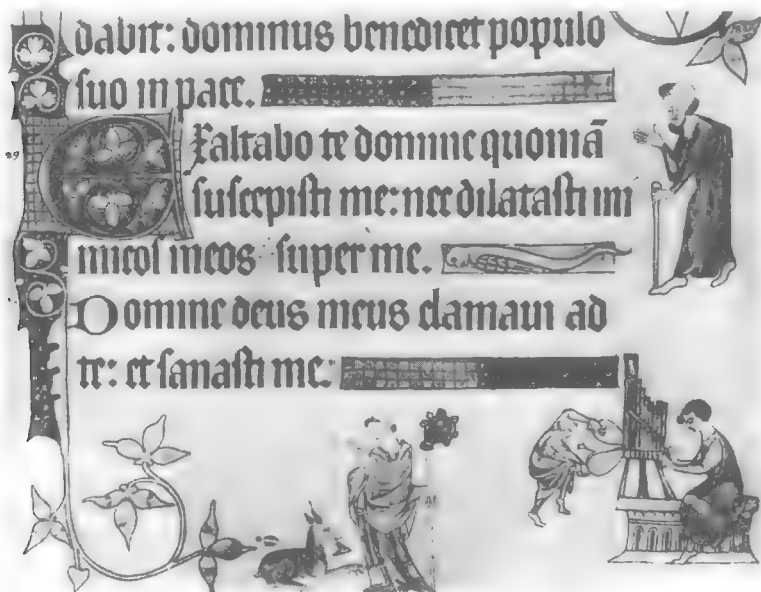 dabit: dominus benedicet populo
ſuo in pace.
29
Exaltabo te domine quoniā
ſuſcepiſti me: nec dilataſti ini
micoſ meos ſuper me.
Domine deus meus clamaui ad
te: et ſanaſti me: